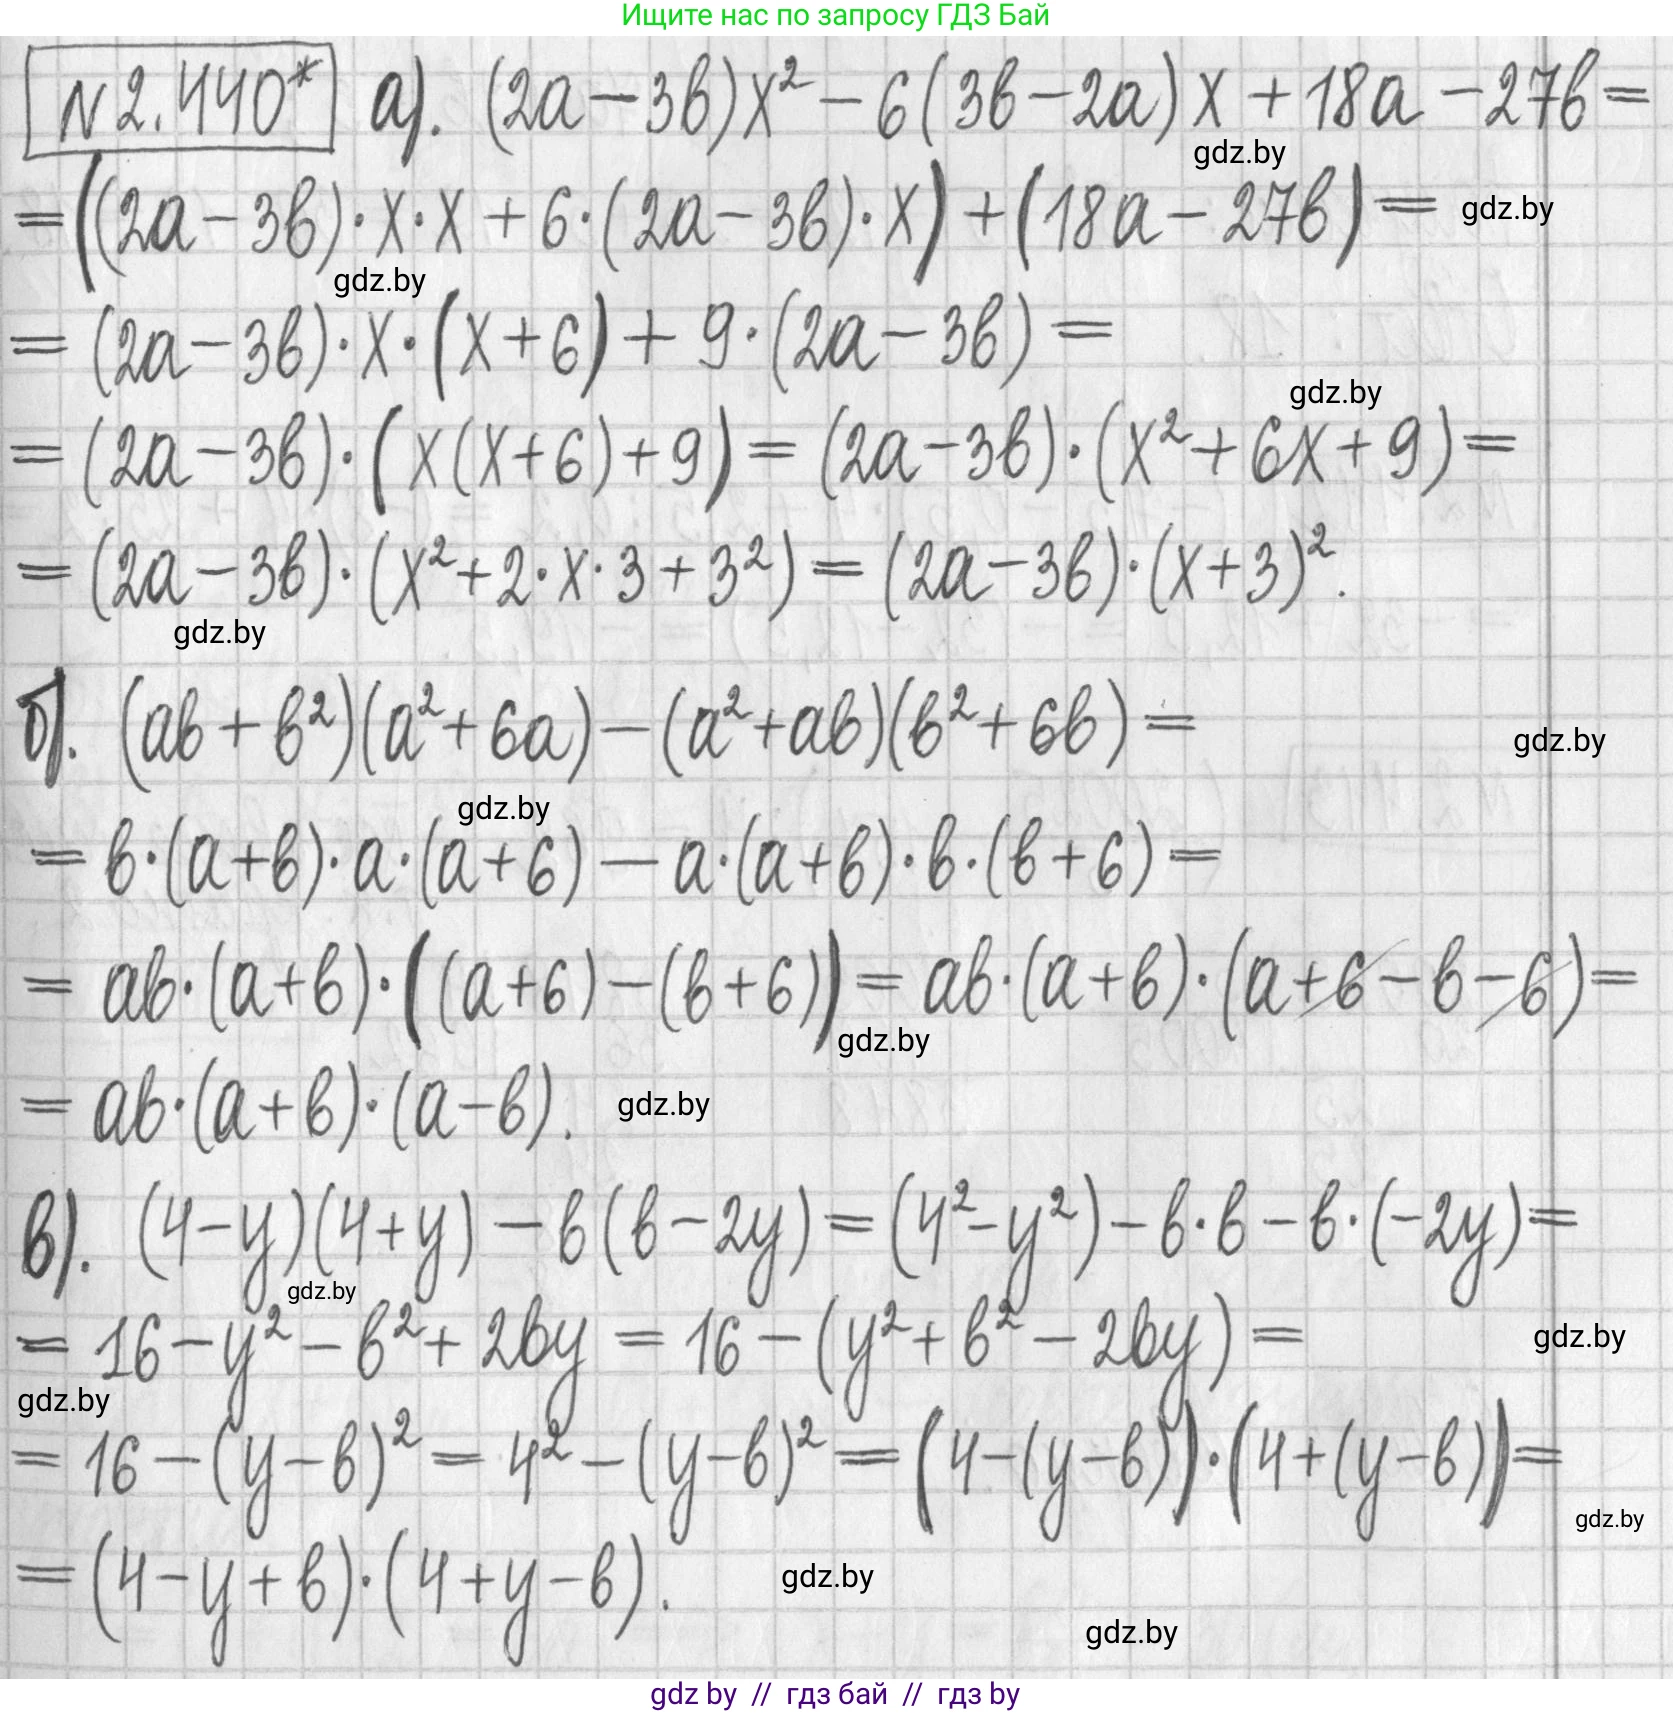 Ищите нас по запросу ГДЗ Бай
N2.440* а). (2a-3b)x²-6(3b-2a)x+18a-27b=
gdz.by
=((2a-3b)·x·x+6·(2a-3b)·x)+(18a-27b)= gdz.by
gdz.by
=(2a-3b)·x·(x+6)+9·(2a-3b)=
gdz.by
=(2a-3b)·(x(x+6)+9)=(2a-3b)·(x²+6x+9)=
=(2a-3b)·(x²+2·x·3+3²)=(2a-3b)·(x+3)².
gdz.by
б). (ab+b²)(a²+6a)-(a²+ab)(b²+6b)= gdz.by
gdz.by
=b·(a+b)·a·(a+6)-a·(a+b)·b·(b+6)=
=ab·(a+b)·((a+6)-(b+6))=ab·(a+b)·(a+6-b-6)=
gdz.by
=ab·(a+b)·(a-b). gdz.by
в). (4-y)(4+y)-b(b-2y)=(4²-y²)-b·b-b·(-2y)=
gdz.by
=16-y²-b²+2by=16-(y²+b²-2by)= gdz.by
gdz.by
=16-(y-b)²=4²-(y-b)²=(4-(y-b))·(4+(y-b))=
gdz.by
=(4-y+b)·(4+y-b). gdz.by
gdz.by
gdz by // гдз бай // гдз by